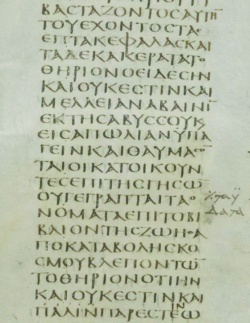 ΒΑCΤΑΖΟΝΤΟCΑΥΤΗ
ΤΟΥΕΧΟΝΤΟCΤΑ
ΕΠΤΑΚΕΦΑΛΑCΚΑΙ
ΤΑΔΕΚΑΚΕΡΑΤΑΤΟ
ΘΗΡΙΟΝΟΕΙΔΕCΗΝ
ΚΑΙΟΥΚΕCΤΙΝΚΑΙ
ΜΕΛΛΕΙΑΝΑΒΑΙΝΙ
ΕΚΤΗCΑΒΥCCΟΥΚ
ΕΙCΑΠΩΛΙΑΝΥΠΑ
ΓΕΙΝΚΑΙΘΑΥΜΑ
ΤΑΙΟΙΚΑΤΟΙΚΟΥΝ
ΤΕCΕΠΙΤΗCΓΗCΩ
ΟΥΓΕΓΡΑΠΤΑΙΤΑ
ΟΝΟΜΑΤΑΕΠΙΤΟΒΙ
ΒΛΙΟΝΤΗCΖΩΗCΑ
ΠΟΚΑΤΑΒΟΛΗCΚΟ
CΜΟΥΒΛΕΠΟΝΤΩ
ΤΟΘΗΡΙΟΝΟΤΙΗΝ
ΚΑΙΟΥΚΕCΤΙΝΚΑΙ
ΠΑΛΙΝΠΑΡΕCΤΕ